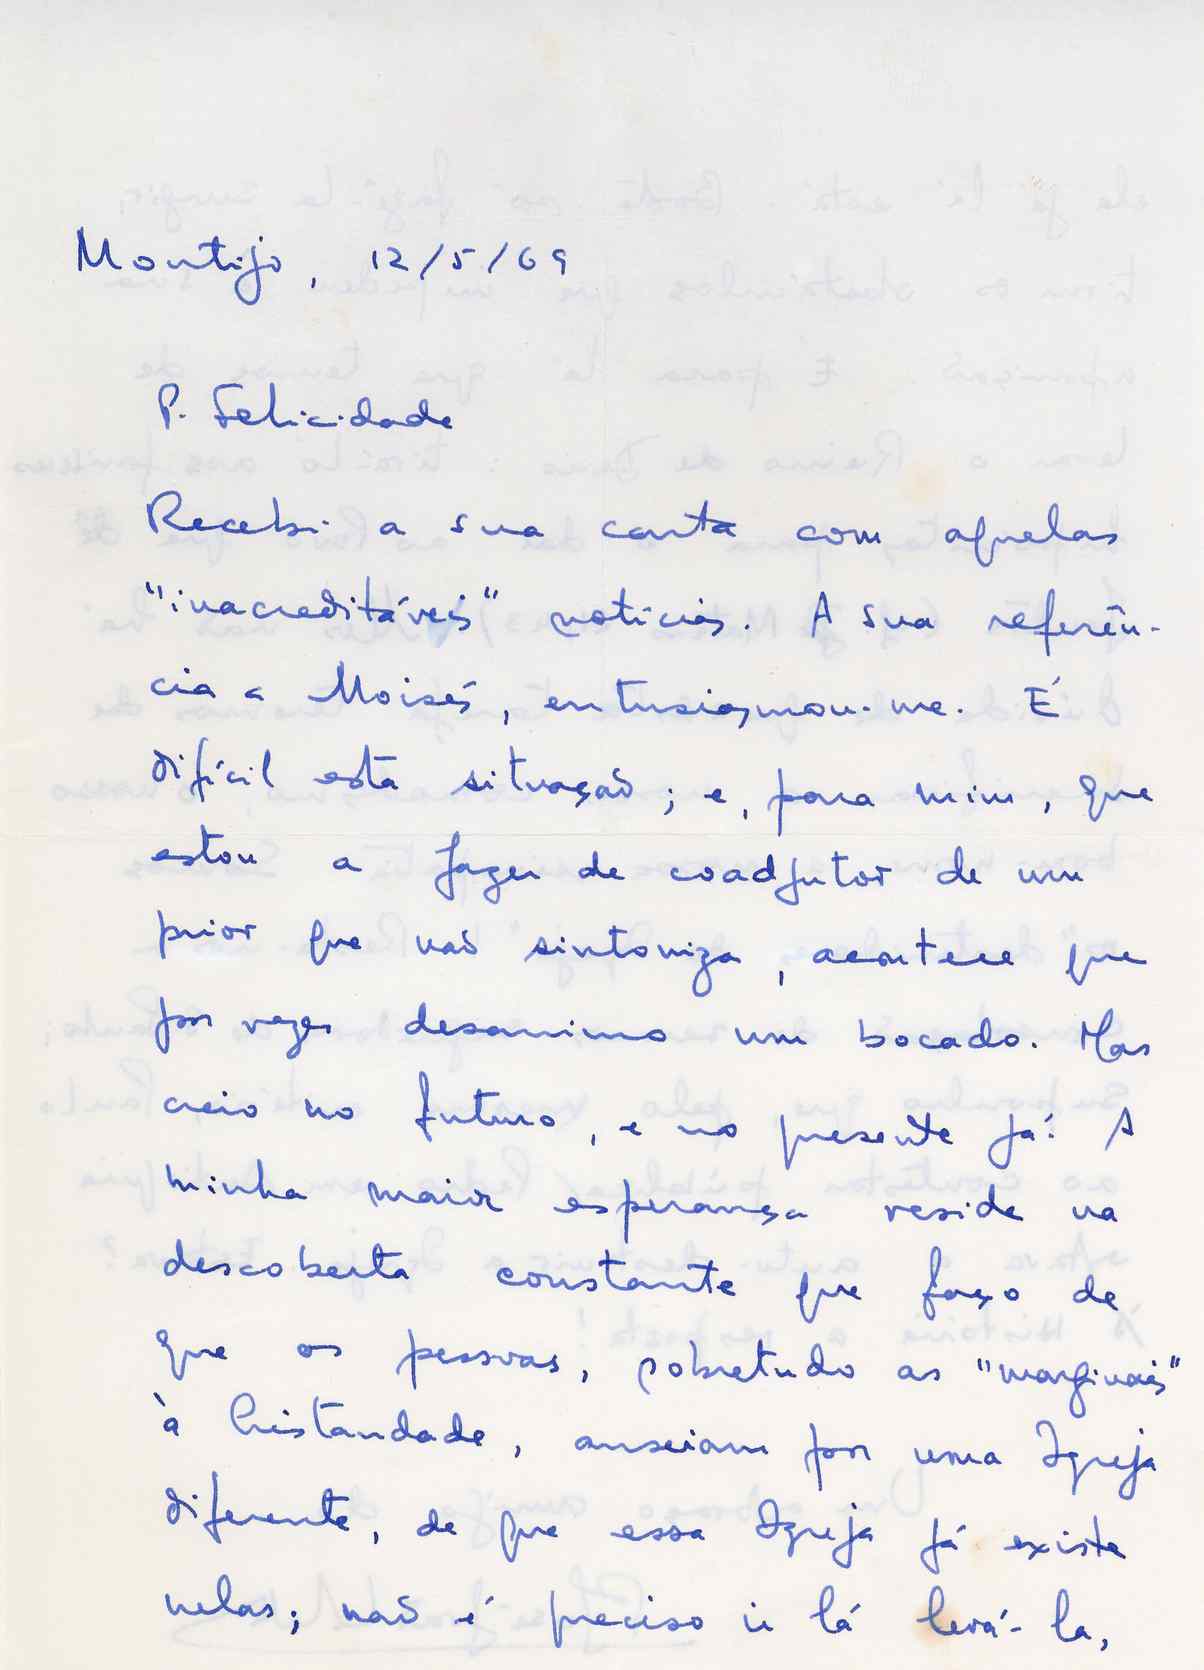 Montijo, 12/5/69
P. Felicidade
Recebi a sua carta com aquelas
"inacreditáveis" notícias. A sua referên-
cia a Moisés, entusiasmou-me. É
difícil esta situação; e, para mim, que
estou a fazer de coadjutor de um
prior que não sintoniza, acontece que
por vezes desanimo um bocado. Mas
creio no futuro, e no presente já! A
minha maior esperança reside na
descoberta constante que faço de
que as pessoas, sobretudo as "marginais"
à Cristandade, anseiam por uma Igreja
diferente, de que essa Igreja já existe
nelas; não é preciso ir lá levá-la,